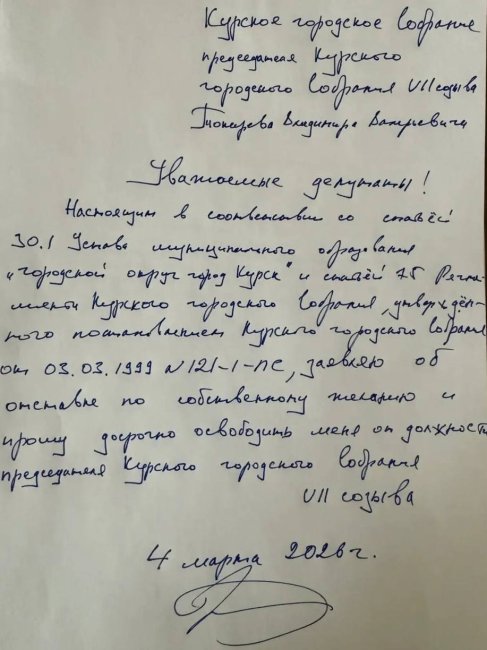 Курское городское Собрание
председателя Курского
городского Собрания VII созыва
Токарева Владимира Валерьевича
Уважаемые депутаты!
Настоящим в соответствии со статьёй
30.1 Устава муниципального образования
"городской округ город Курск" и статьёй 75 Регла-
мента Курского городского Собрания, утверждён-
ного постановлением Курского городского Собрания
от 03.03.1999 №121-1-ПС, заявляю об
отставке по собственному желанию и
прошу досрочно освободить меня от должности
председателя Курского городского Собрания
VII созыва
4 марта 2026 г.